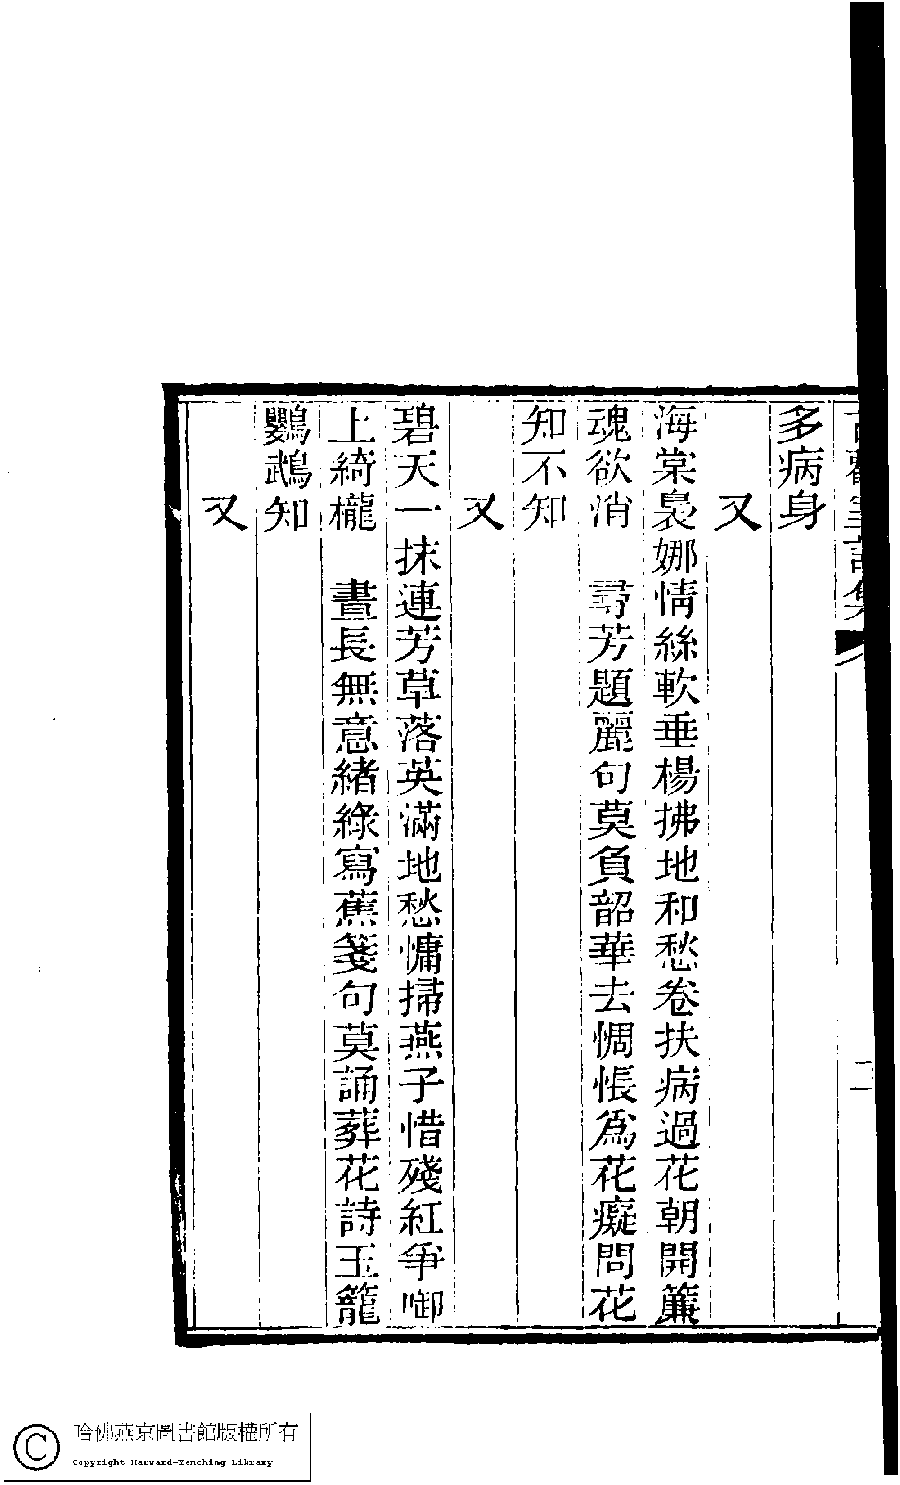 二
多病身
又
海棠裊娜情絲軟垂楊拂地和愁卷扶病過花朝開簾
魂欲消　尋芳題麗句莫負韶華去惆悵爲花癡問花
知不知
又
碧天一抹連芳草落英滿地愁慵掃燕子惜殘紅爭啣
上綺櫳　晝長無意緒綠寫蕉箋句莫誦葬花詩玉籠
鸚鵡知
又
哈佛燕京圖書館版權所有
Copyright Harvard-Yenching Library